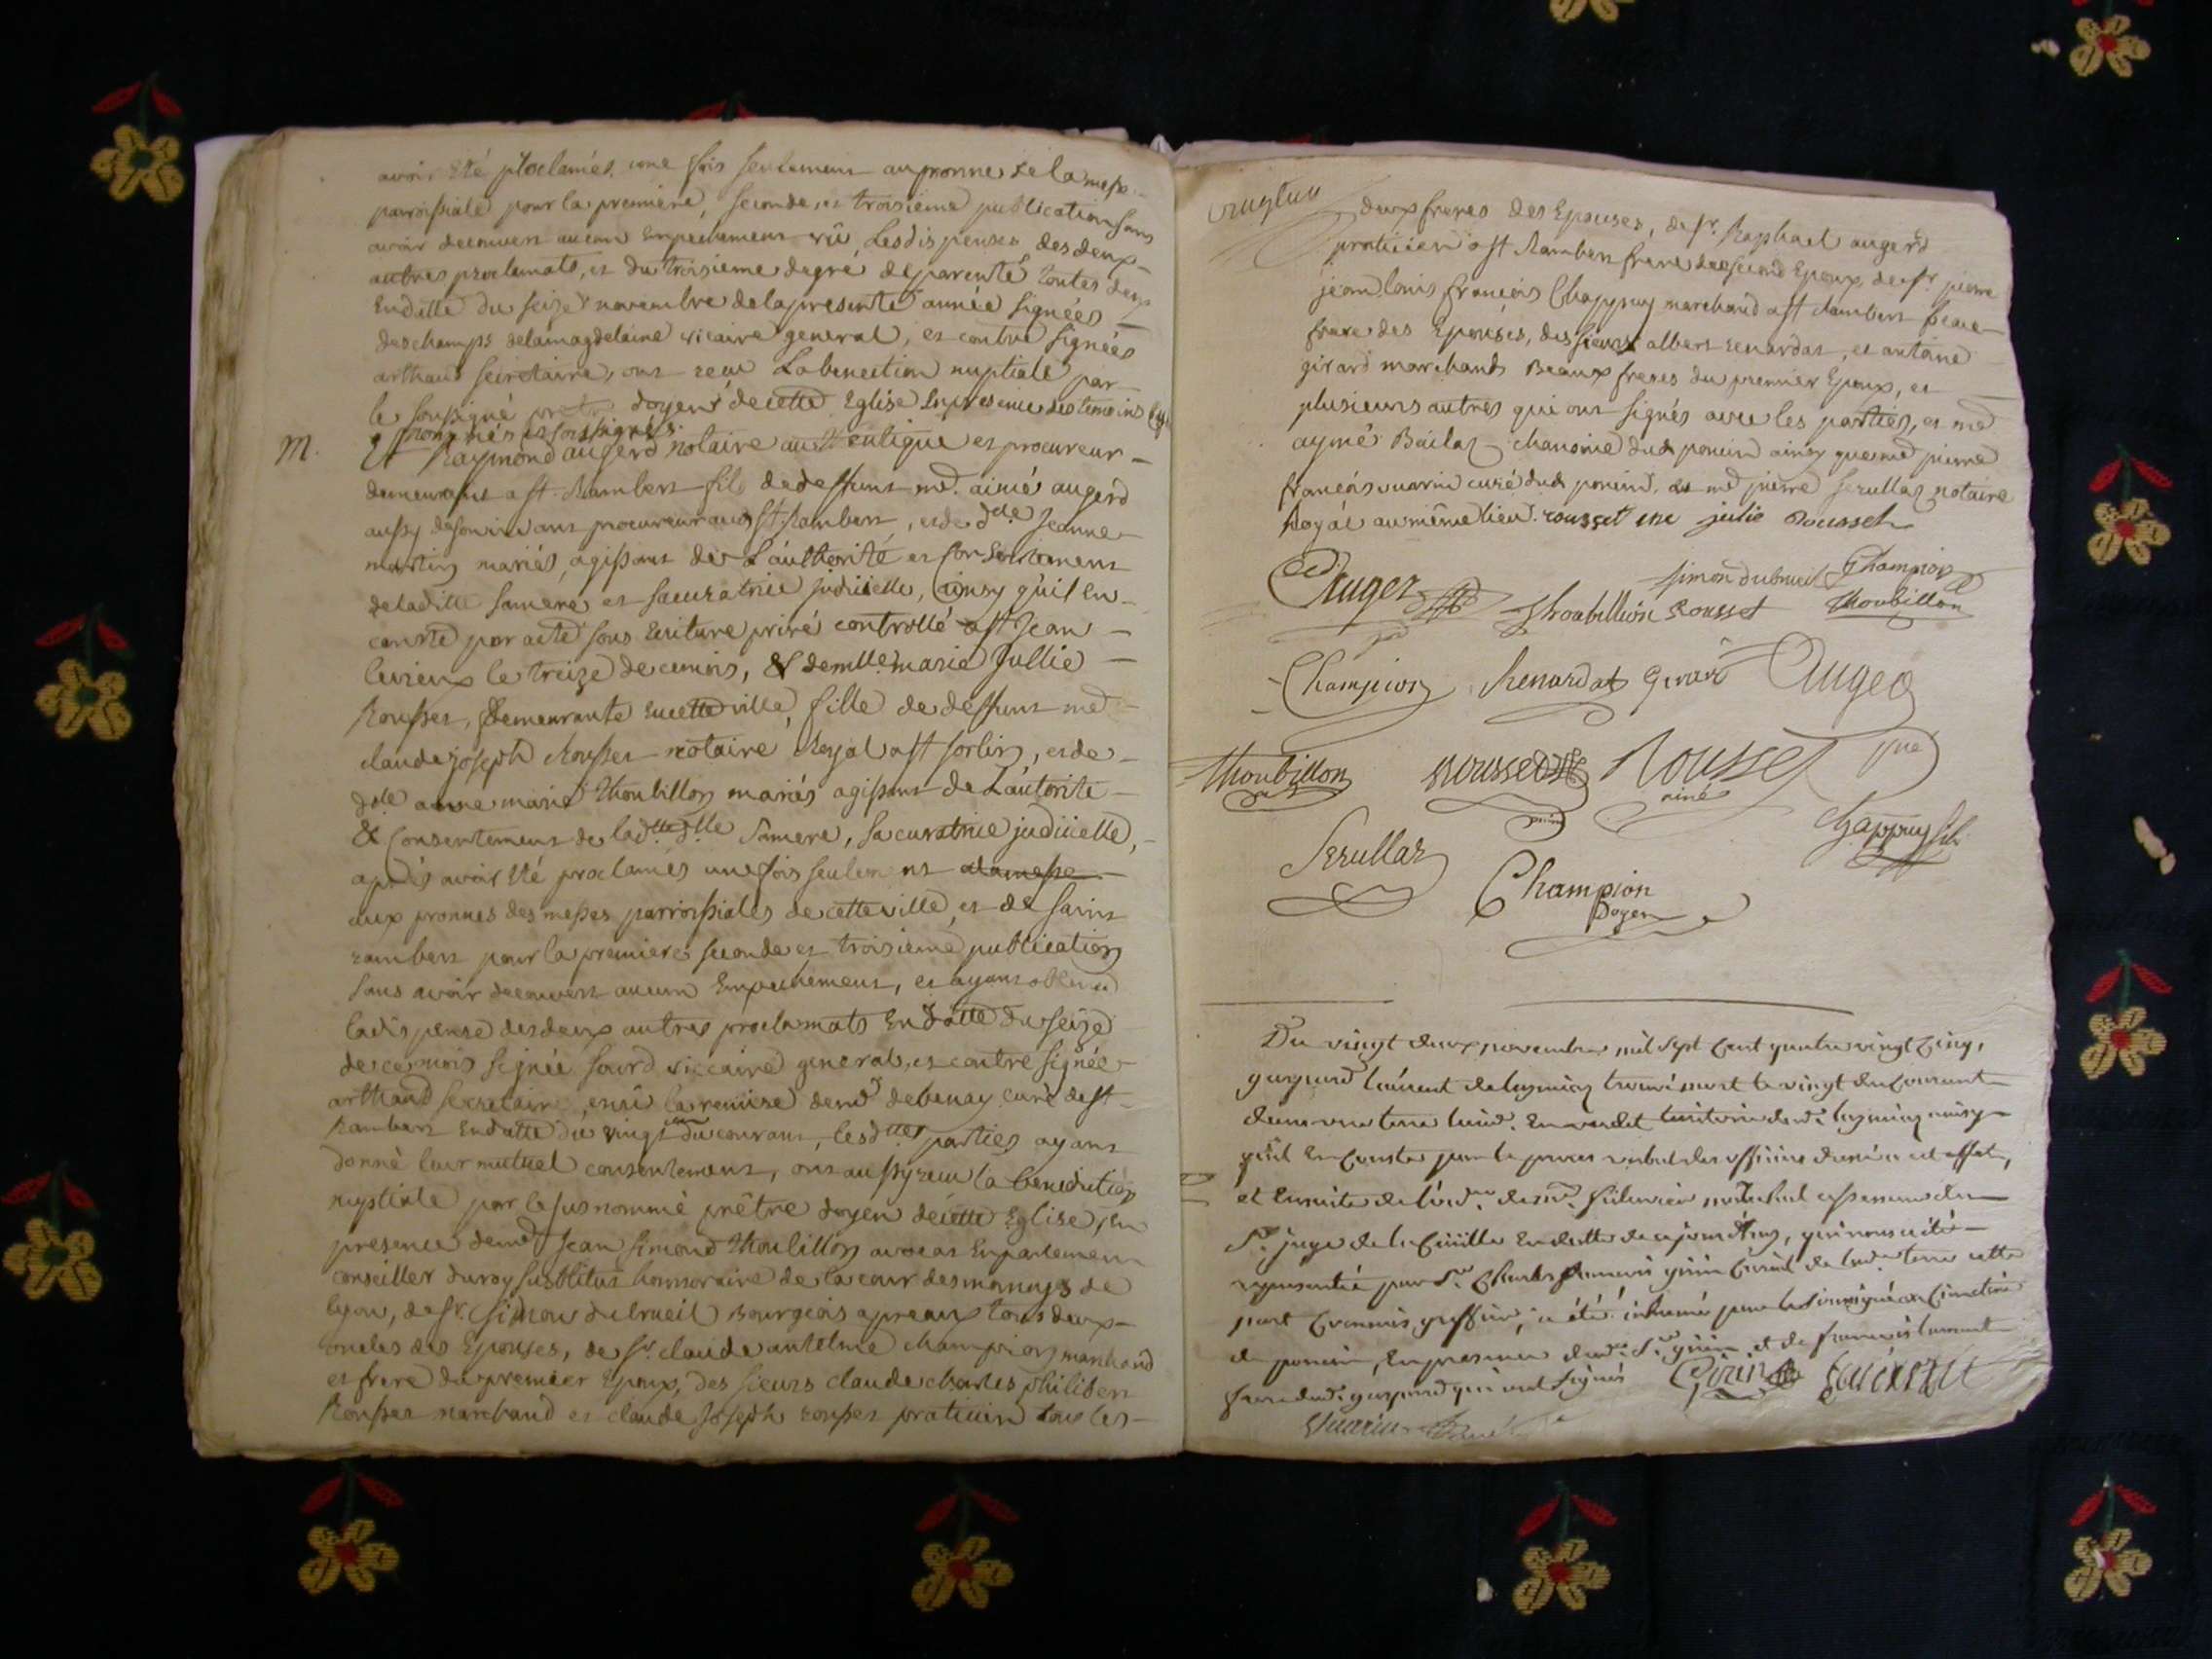 avoir été proclamés une fois seulement au pronne de la messe
parroissiale pour la premiere, seconde, et troisieme publication sans
avoir decouvert aucun Empechement vû Les dispenses des deux
autres proclamats, et du troisieme degré de parenté toutes deux
En datte du seize novembre de la presente année signées
deschamps delamagdelaine vicaire general, et contre signées
arthaud secretaire, ont reçu La benediction nuptiale par
le soussigné pretre doyen de cette Eglise En presence des temoins cy
nommés et soussignés.
M. Et Raymond augerd notaire auttentique et procureur
demeurant a st Rambert fils de deffunt me. aimé augerd
aussy de son vivant procureur aud st Rambert, et de dlle Jeanne
martin mariés, agissant de L'authorité et Consentement
de laditte sa mere et sa curatrice judicielle, ainsy qu'il en
conste par acte sous Ecriture privé controllé a st Jean
levieux le treize de ce mois, & demlle marie Jullie
Rousset, demeurante en cette ville, fille de deffunt me
claude joseph Rousset notaire Royal a st sorlin, et de
dlle anne marie Thoubillon mariés agissant de L'autorite
& Consentement de ladtte dlle sa mere, sa curatrice judicielle,
après avoir été proclamés une fois seulement a la messe
aux pronnes des messes parroissiales de cette ville, et de saint
rambert pour la premiere seconde et troisieme publication
sans avoir decouvert aucun Empechement, et ayant obtenu
la dispense des deux autres proclamats En datte du seize
de ce mois signée sourd viccaire general, et contre signée
arthaud secretaire, en vû la remise de me debenay curé de st
Rambert En datte du vingt du courant, lesdttes parties ayant
donné leur mutuel consentement, ont aussy reçu la benediction
nuptiale par le susnommé prêtre doyen de cette Eglise, En
presence de me Jean simond Thoubillon avocat En parlement
conseiller du roy substitut honnoraire de la cour des monnoys de
lyon, de sr. simon dubrueil Bourgeois a preaux tous deux
oncles des Epouses, de sr. claude antelme champion marchand
et frere du premier Epoux, des sieurs claude charles philibert
Rousset marchand et claude Joseph rousset praticien tous les
deux freres des Epouses, de sr. Raphael augerd
praticien a st Rambert frere du second Epoux, de sr pierre
jean louis françois Chappuy marchand a st Rambert beau
frere des Epouses, des sieurs albert renardat, et antoine
girard marchands Beaux freres du premier Epoux, et
plusieurs autres qui ont signés avec les parties, et me
aymé Bailat chanoine dud poncin ainsy que me pierre
françois curé dud poncin, et me pierre serullaz notaire
Royal au même lieu. rousset julie Rousset
Auger simon dubrueil Champion
Thoubillion Rousset Thoubillon
Champion Renardat Girard Auger
Thoubillon Rousset Rousset
ainé
Serullaz Chappuy fils
Champion
Doyen
Du vingt deux novembre mil sept Cent quatre vingt Cinq,
gaspard laurent de trouvé mort le vingt du Courant
dans une terre En territoire de
qu'il En Conste par le procès verbal des officiers a cet effet,
et Ensuite de
Sr. juge de En datte de ce jourd'huy, qui nous a été
représentée par Sr. Charles
part Commis greffier, a été inhumé par le soussigné au Cimetière
de poncin, En presence dud. Sr. et de françois laurent
frere dud. gaspard qui ont signés Girin Laurent